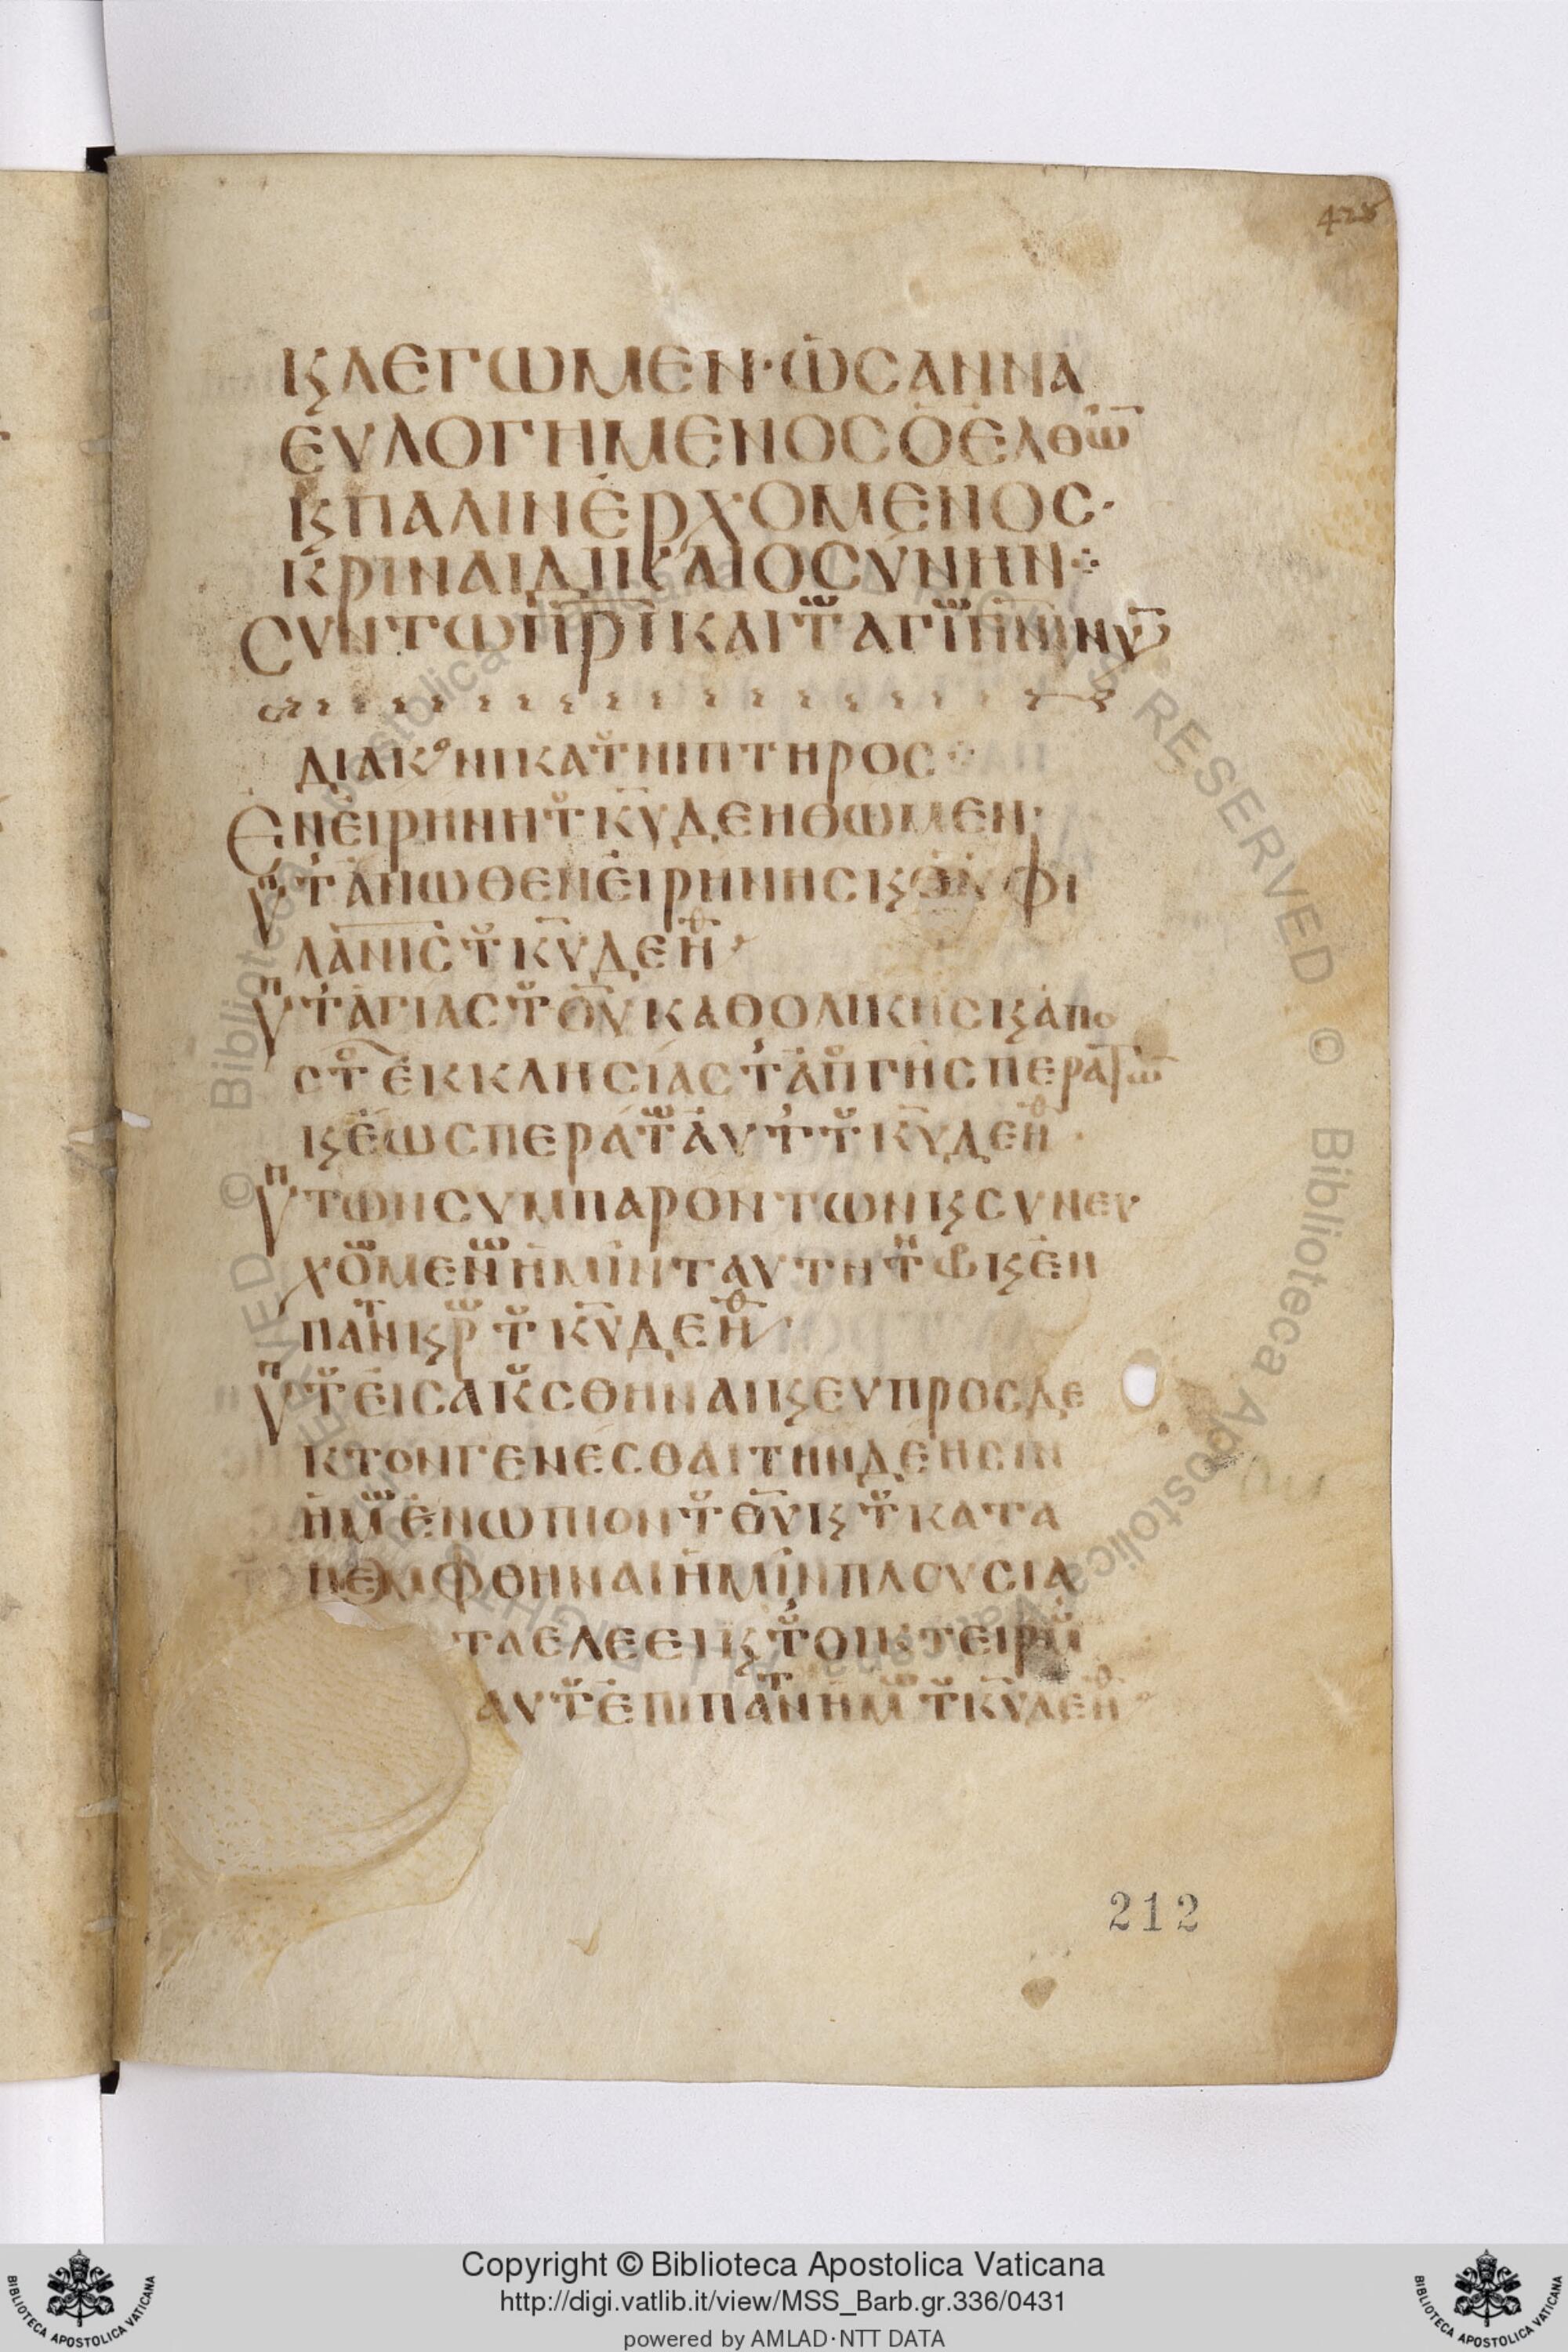 428
ϗ ΛΕΓΩΜΕΝ· ὩϹΑΝΝΑ
ΕΥΛΟΓΗΜΕΝΟϹ Ὁ ΕΛΘΩ̅
ϗ ΠΑΛΙΝ ἘΡΧΟΜΕΝΟϹ·
ΚΡΙΝΑΙ ΔΙΚΑΙΟϹΥΝΗΝ
ϹΥΝ ΤΩ Π̅Ρ̅Ι̅ ΚΑΙ Τ ΑΓΙ Π̅Ν̅Ι̅ ΝΥ̅
ΔΙΑΚΟΝΙΚΑ Τ ΝΙΠΤΗΡΟϹ
ΕΝ ἘΙΡΗΝΗ Τ Κ̅Υ̅ ΔΕΗΘΩΜΕΝ·
ΥΠ Τ ἈΝΩΘΕΝ ἘΙΡΗΝΗϹ ϗ ΦΙ
ΛΑΝΙϹ Τ Κ̅Υ̅ ΔΕΗΘ
ΥΠ Τ ἉΓΙΑϹ Τ Θ̅Υ̅ ΚΑΘΟΛΙΚΗϹ ϗ ἈΠΟ
ϹΤ ἘΚΚΛΗϹΙΑϹ Τ ἈΠ ΓΗϹ ΠΕΡΑΤΩ̅
ϗ ἙΩϹ ΠΕΡΑΤ ΑΥΤ Τ Κ̅Υ̅ ΔΕΗΘ
ΥΠ ΤΩΝ ϹΥΜΠΑΡΟΝΤΩΝ ϗ ϹΥΝΕΥ
ΧΟΜΕΝ ἩΜΙΝ ΤΑΥΤΗ Τ ϗ ἘΝ
ΠΑΝΤ ϗΡ Τ Κ̅Υ̅ ΔΕΗΘ
ΥΠ Τ ἘΙϹΑΚϹΘΗΝΑΙ ϗ ΕΥΠΡΟϹΔΕ
ΚΤΟΝ ΓΕΝΕϹΘΑΙ ΤΗΝ ΔΕΗϹΙΝ
ἩΜ ἘΝΩΠΙΟΝ Τ Θ̅Υ̅ ϗ Τ ΚΑΤΑ
ΠΕΜΦΘΗΝΑΙ ἩΜΙΝ ΠΛΟΥϹΙΑ
ΤΑ ΕΛΕΕΙ ϗ Τ ΟΙΚΤΕΙΡΜ
ΑΥΤ ἘΠΙ ΠΑΝΤ ἩΜ Τ Κ̅Υ̅ ΔΕΗΘ
212
Copyright © Biblioteca Apostolica Vaticana
http://digi.vatlib.it/view/MSS_Barb.gr.336/0431
powered by AMLAD·NTT DATA
BIBLIOTECA APOSTOLICA VATICANA
BIBLIOTECA APOSTOLICA VATICANA